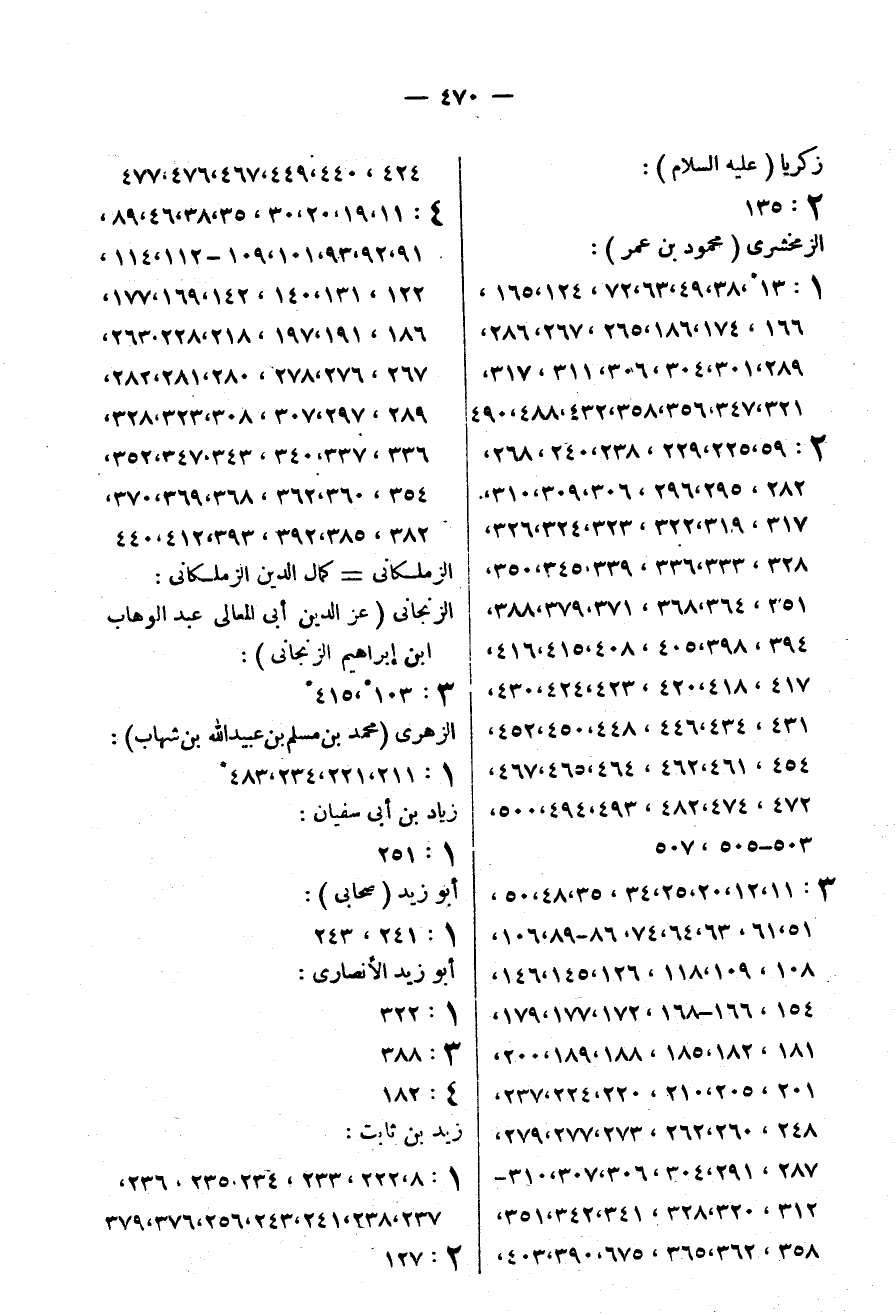 — ٤٧٠ —
زكريا ( عليه السلام ) :
٢ : ١٣٥
الزمخشرى ( محمود بن عمر ) :
١ : ١٣*،٣٨،٤٩،٦٣،٧٢ ، ١٢٤،١٦٥ ،
١٦٦ ، ١٧٤،١٨٦،٢٦٥ ،٢٦٧ ،٢٨٦،
٢٨٩،٣٠١،٣٠٤ ،٣٠٦، ٣١١ ، ٣١٧،
٣٢١،٣٤٧،٣٥٦،٣٥٨،٤٣٢،٤٨٨ ،٤٩٠
٢ : ٥٩،٢٢٥،٢٢٩ ،٢٣٨ ،٢٤٠ ،٢٦٨،
٢٨٢ ، ٢٩٥،٢٩٦ ،٣٠٦،٣٠٩،٣١٠،
٣١٧ ، ٣١٩،٣٢٢ ، ٣٢٣،٣٢٤،٣٢٦،
٣٢٨ ، ٣٣٣،٣٣٦ ، ٣٣٩،٣٤٥،٣٥٠،
٢٥١ ، ٣٦٤،٣٦٨ ، ٣٧١،٣٧٩،٣٨٨،
٣٩٤ ، ٣٩٨،٤٠٥ ، ٤٠٨،٤١٥،٤١٦،
٤١٧ ، ٤١٨،٤٢٠ ، ٤٢٣،٤٢٤،٤٣٠،
٤٣١ ، ٤٣٤،٤٤٦ ، ٤٤٨،٤٥٠،٤٥٢،
٤٥٤ ، ٤٦١،٤٦٢ ، ٤٦٤،٤٦٥،٤٦٧،
٤٧٢ ، ٤٧٤،٤٨٢ ، ٤٩٣،٤٩٤،٥٠٠،
٥٠٣–٥٠٥ ، ٥٠٧
٣ : ١١،١٢،٢٠،٢٥،٣٤ ، ٣٥،٤٨،٥٠ ،
٥١،٦١، ٦٣،٦٤،٧٤ ،٨٦–٨٩،١٠٦،
١٠٨ ، ١٠٩،١١٨ ، ١٢٦،١٤٥،١٤٦،
١٥٤ ، ١٦٦–١٦٨ ،١٧٢،١٧٧،١٧٩،
١٨١ ، ١٨٢،١٨٥ ، ١٨٨،١٨٩،٢٠٠،
٢٠١ ، ٢٠٥،٢١٠ ، ٢٢٠،٢٢٤،٢٣٧،
٢٤٨ ، ٢٦٠،٢٦٢ ، ٢٧٣،٢٧٧،٢٧٩،
٢٨٧ ، ٢٩١،٣٠٤ ، ٣٠٦،٣٠٧،٣١٠–
٣١٢ ، ٣٢٠،٣٢٨ ، ٣٤١،٣٤٢،٣٥١،
٣٥٨ ، ٣٦٢،٣٦٥ ، ٦٧٥،٣٩٠،٤٠٣،
٤٢٤ ، ٤٤٠،٤٤٩،٤٦٧،٤٧٦،٤٧٧
٤ : ١١،١٩،٢٠،٣٠ ، ٣٥،٣٨،٤٦،٨٩،
٩١،٩٢،٩٣،١٠١،١٠٩–١١٢ ،١١٤ ،
١٢٢ ، ١٣١،١٤٠ ، ١٤٢،١٦٩،١٧٧،
١٨٦ ، ١٩١،١٩٧ ، ٢١٨،٢٢٨،٢٦٣،
٢٦٧ ، ٢٧٦،٢٧٨ ، ٢٨٠،٢٨١،٢٨٢،
٢٨٩ ، ٢٩٧،٣٠٧ ، ٣٠٨،٣٢٣،٣٢٨،
٣٣٦ ، ٣٣٧،٣٤٠ ، ٣٤٣،٣٤٧،٣٥٢،
٣٥٤ ، ٣٦٠،٣٦٢ ، ٣٦٨،٣٦٩،٣٧٠،
٣٨٢ ، ٣٨٥،٣٩٢ ،٣٩٣،٤١٢،٤٤٠
الزملكانى = كمال الدين الزملكانى :
الزنجانى ( عز الدين أبى المعالى عبد الوهاب
ابن إبراهيم الزنجانى ) :
٣ : ١٠٣*،٤١٥*
الزهرى (محمد بن مسلم بن عبيد الله بن شهاب) :
١ : ٢١١،٢٢١،٢٣٤،٤٨٣*
زياد بن أبى سفيان :
١ : ٢٥١
أبو زيد ( صحابى ) :
١ : ٢٤١ ، ٢٤٣
أبو زيد الأنصارى :
١ : ٣٢٢
٣ : ٣٨٨
٤ : ١٨٢
زيد بن ثابت :
١ : ٨،٢٢٢، ٢٣٣ ، ٢٣٤،٢٣٥ ، ٢٣٦،
٢٣٧،٢٣٨،٢٤١،٢٤٣،٢٥٦،٣٧٦،٣٧٩
٢ : ١٢٧